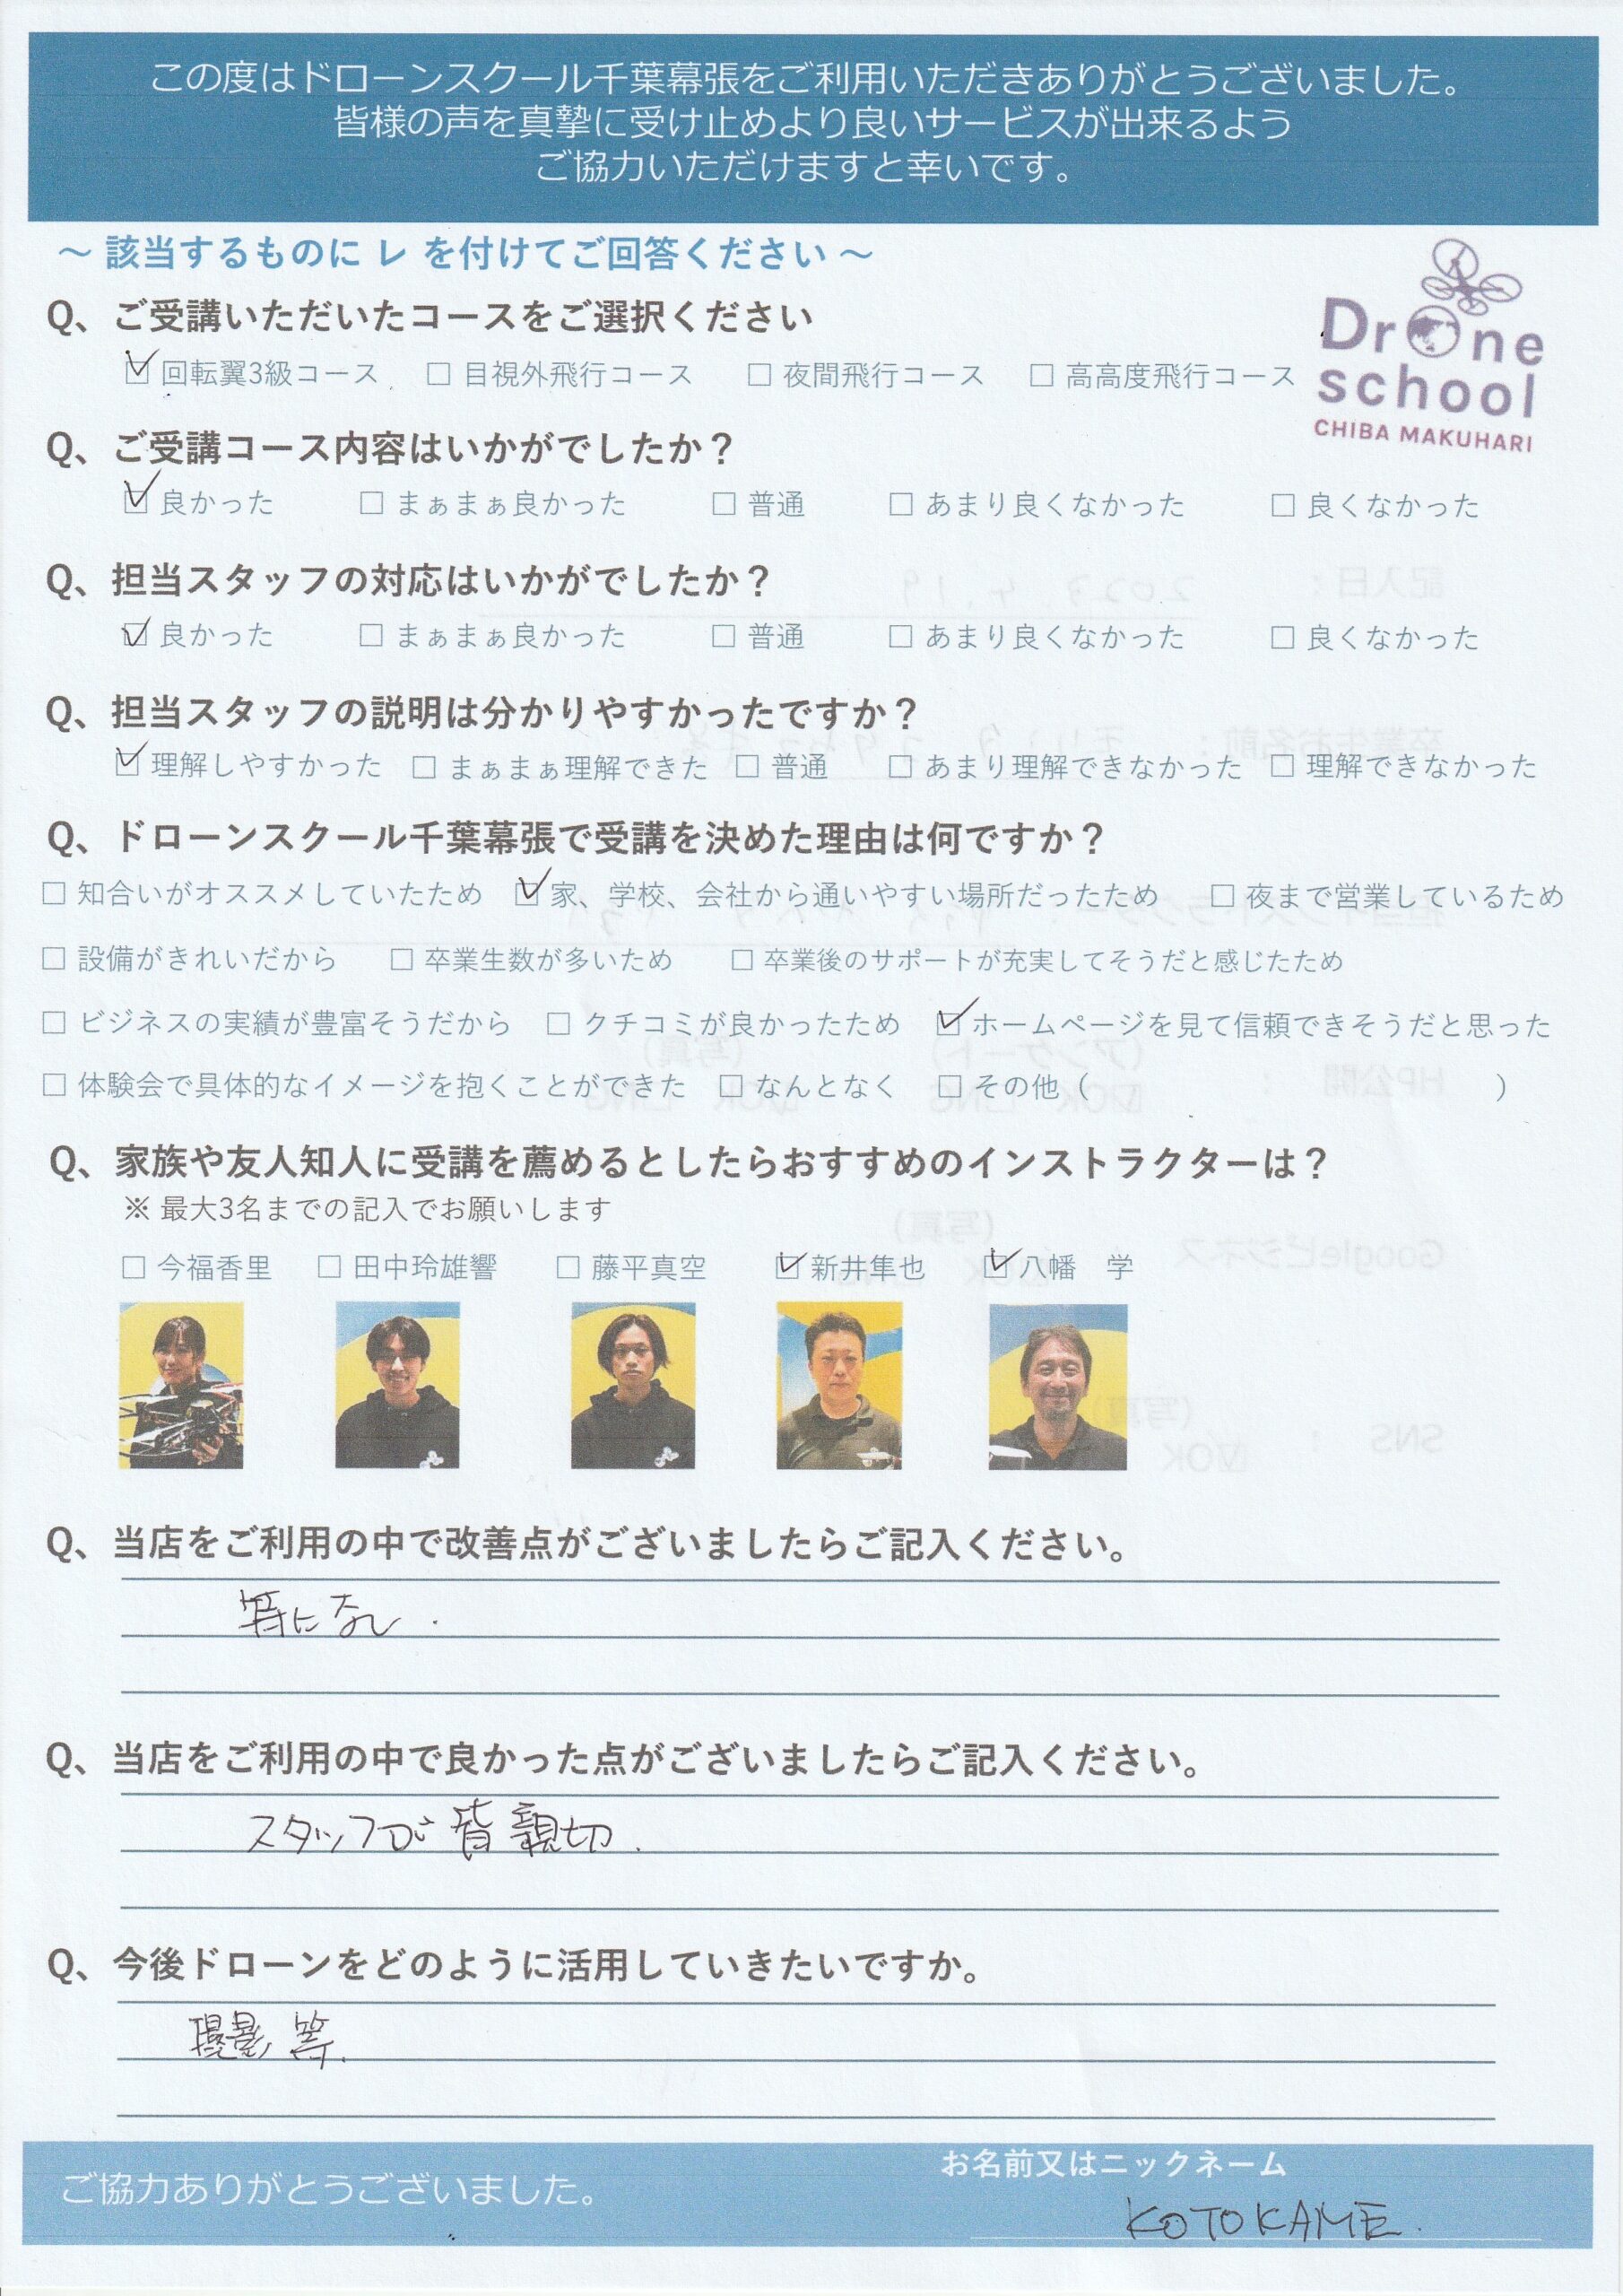 この度はドローンスクール千葉幕張をご利用いただきありがとうございました。
皆様の声を真摯に受け止めより良いサービスが出来るよう
ご協力いただけますと幸いです。
～ 該当するものに レ を付けてご回答ください ～
Drone
school
CHIBA MAKUHARI
Q、ご受講いただいたコースをご選択ください
☑ 回転翼3級コース □ 目視外飛行コース □ 夜間飛行コース □ 高高度飛行コース
Q、ご受講コース内容はいかがでしたか？
☑ 良かった □ まぁまぁ良かった □ 普通 □ あまり良くなかった □ 良くなかった
Q、担当スタッフの対応はいかがでしたか？
☑ 良かった □ まぁまぁ良かった □ 普通 □ あまり良くなかった □ 良くなかった
Q、担当スタッフの説明は分かりやすかったですか？
☑ 理解しやすかった □ まぁまぁ理解できた □ 普通 □ あまり理解できなかった □ 理解できなかった
Q、ドローンスクール千葉幕張で受講を決めた理由は何ですか？
□ 知合いがオススメしていたため ☑ 家、学校、会社から通いやすい場所だったため □ 夜まで営業しているため
□ 設備がきれいだから □ 卒業生数が多いため □ 卒業後のサポートが充実してそうだと感じたため
□ ビジネスの実績が豊富そうだから □ クチコミが良かったため ☑ ホームページを見て信頼できそうだと思った
□ 体験会で具体的なイメージを抱くことができた □ なんとなく □ その他（ ）
Q、家族や友人知人に受講を薦めるとしたらおすすめのインストラクターは？
※ 最大3名までの記入でお願いします
□ 今福香里 □ 田中玲雄響 □ 藤平真空 ☑ 新井隼也 ☑ 八幡 学
Q、当店をご利用の中で改善点がございましたらご記入ください。
特になし.
Q、当店をご利用の中で良かった点がございましたらご記入ください。
スタッフが皆親切.
Q、今後ドローンをどのように活用していきたいですか。
撮影等.
ご協力ありがとうございました。
お名前又はニックネーム
KOTOKAME.